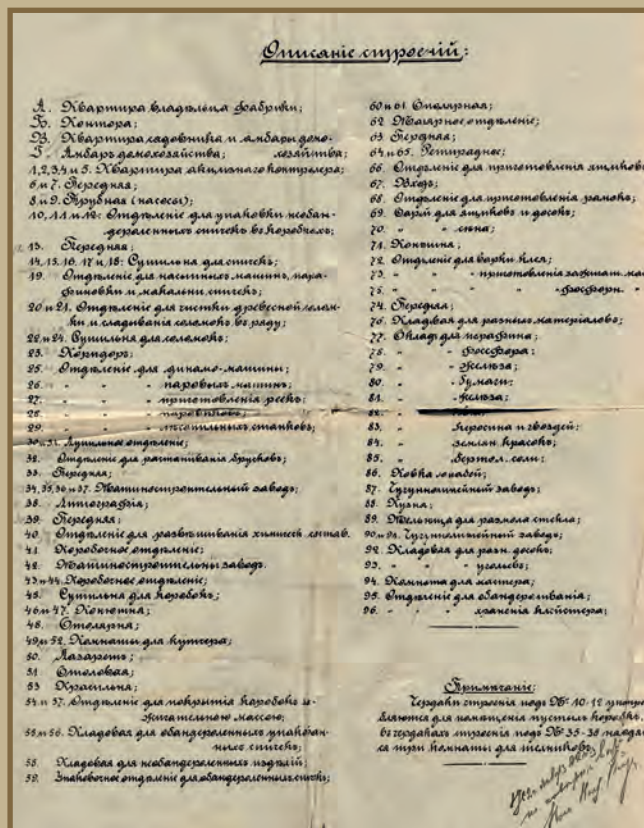 Описаніе строеній:
А. Квартира владѣльца фабрики;
Б. Контора;
В. Квартира садовника и амбары домо-
Г. Амбаръ домохозяйства; хозяйства;
1,2,3,4 и 5. Квартира акцизнаго контролера;
6 и 7. Передняя;
8 и 9. Трубная (насосы);
10, 11 и 12. Отдѣленіе для упаковки необан-
дероленныхъ спичекъ въ коробкахъ;
13. Передняя;
14, 15, 16, 17 и 18: Сушильня для спичекъ;
19. Отдѣленіе для насыпныхъ машинъ, пара-
финовки и макальни спичекъ;
20 и 21. Отдѣленіе для чистки древесной солом-
ки и складыванія соломокъ въ ряду;
22 и 24. Сушильня для соломокъ;
23. Коридоръ;
25. Отдѣленіе для динамо-машины;
26. " " " паровыхъ машинъ;
27. " " " приготовленія реекъ;
28. " " " паровиковъ;
29. " " " лѣсопильныхъ станковъ;
30 и 31. Лущильное отдѣленіе;
32. Отдѣленіе для распаиванія брусковъ;
33. Передняя;
34, 35, 36 и 37. Машиностроительный заводъ;
38. Литографія;
39. Передняя;
40. Отдѣленіе для развѣшиванія химическ. состав.
41. Коробочное отдѣленіе;
42. Машиностроительн. заводъ.
43 и 44. Коробочное отдѣленіе;
45. Сушильня для коробокъ;
46 и 47. Конюшня;
48. Столярня;
49 и 52. Комнаты для кучера;
50. Лазаретъ;
51. Столовая;
53. Красильня;
54 и 57. Отдѣленіе для покрытія коробокъ за-
жигательною массою;
55 и 56. Кладовая для обандероленныхъ упакован-
ныхъ спичекъ;
58. Кладовая для необандероленныхъ издѣлій;
59. Этикеточное отдѣленіе для обандероленныхъ спичекъ;
60 и 61 Столярная;
62. Токарное отдѣленіе;
63. Передняя;
64 и 65. Ретирадное;
66. Отдѣленіе для приготовленія ящиковъ
67. Входъ;
68. Отдѣленіе для приготовленія рамокъ;
69. Сарай для ящиковъ и досокъ;
70. " " сѣна;
71. Конюшня;
72. Отдѣленіе для варки клея;
73. " " " приготовленія зажигат. мас
75. " " " " фосфорн. "
74. Передняя;
76. Кладовая для разныхъ матеріаловъ;
77. Складъ для парафина;
78. " " фосфора;
79. " " желѣза;
80. " " бумаги;
81. " " желѣза;
82. " "
83. " керосина и гвоздей;
84. " землян. красокъ;
85. " бертол. соли;
86. Ковка лошадей;
87. Чугуннолитейный заводъ;
88. Кузня;
89. Мельница для размола стекла;
90 и 91. Чугуннолитейный заводъ;
92. Кладовая для разн. досокъ;
93. " " углевъ;
94. Комната для мастера;
95. Отдѣленіе для обандероливанія;
96. " " " храненія клейстера;
Примѣчаніе:
Чердаки строенія подъ № 10-12 употре
бляются для помѣщенія пустыхъ коробк.
въ чердакахъ строенія подъ № 35-38 находя
ся три комнаты для